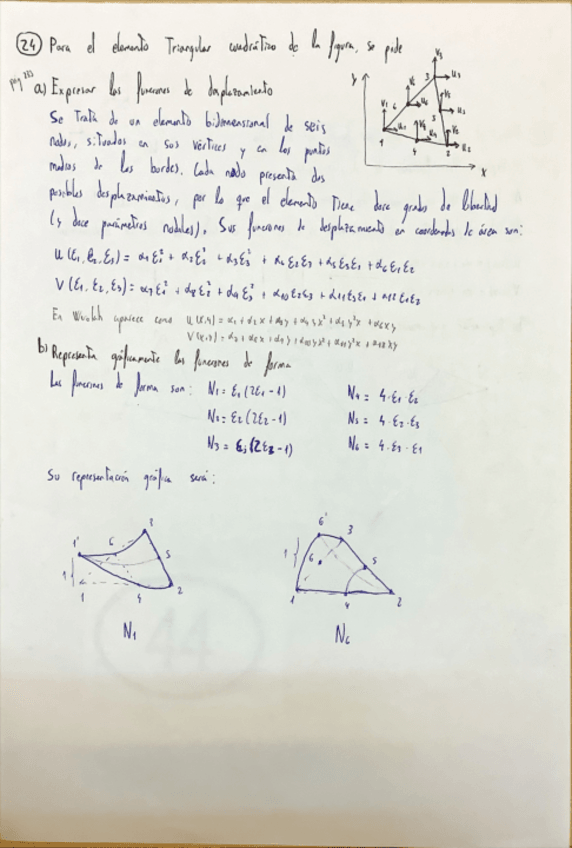 24 Para el elemento Triangular cuadrático de la figura, se pide
pág 233 a) Expresar las funciones de desplazamiento
Se trata de un elemento bidimensional de seis
nodos, situados en sus vértices y en los puntos
medios de los bordes. Cada nodo presenta dos
posibles desplazamientos, por lo que el elemento tiene doce grados de libertad
(y doce parámetros nodales). Sus funciones de desplazamiento en coordenadas de área son:
U(ε1, ε2, ε3) = α1 ε1² + α2 ε2² + α3 ε3² + α4 ε2 ε3 + α5 ε3 ε1 + α6 ε1 ε2
V(ε1, ε2, ε3) = α7 ε1² + α8 ε2² + α9 ε3² + α10 ε2 ε3 + α11 ε3 ε1 + α12 ε1 ε2
En aparece como U(x,y) = α1 + α2 x + α3 y + α4 x² + α5 y² + α6 xy
b) Representa gráficamente las funciones de forma
Las funciones de forma son: N1 = ε1 (2ε1 - 1) N4 = 4·ε1·ε2
N2 = ε2 (2ε2 - 1) N5 = 4·ε2·ε3
N3 = ε3 (2ε3 - 1) N6 = 4·ε3·ε1
Su representación gráfica será:
y x
V1 U1 1 V2 U2 2 V3 U3 3 V4 U4 4 V5 U5 5 V6 U6 6
1' 6 3 5 1 1 4 2
N1
6' 3 1 6 5 1 4 2
N6